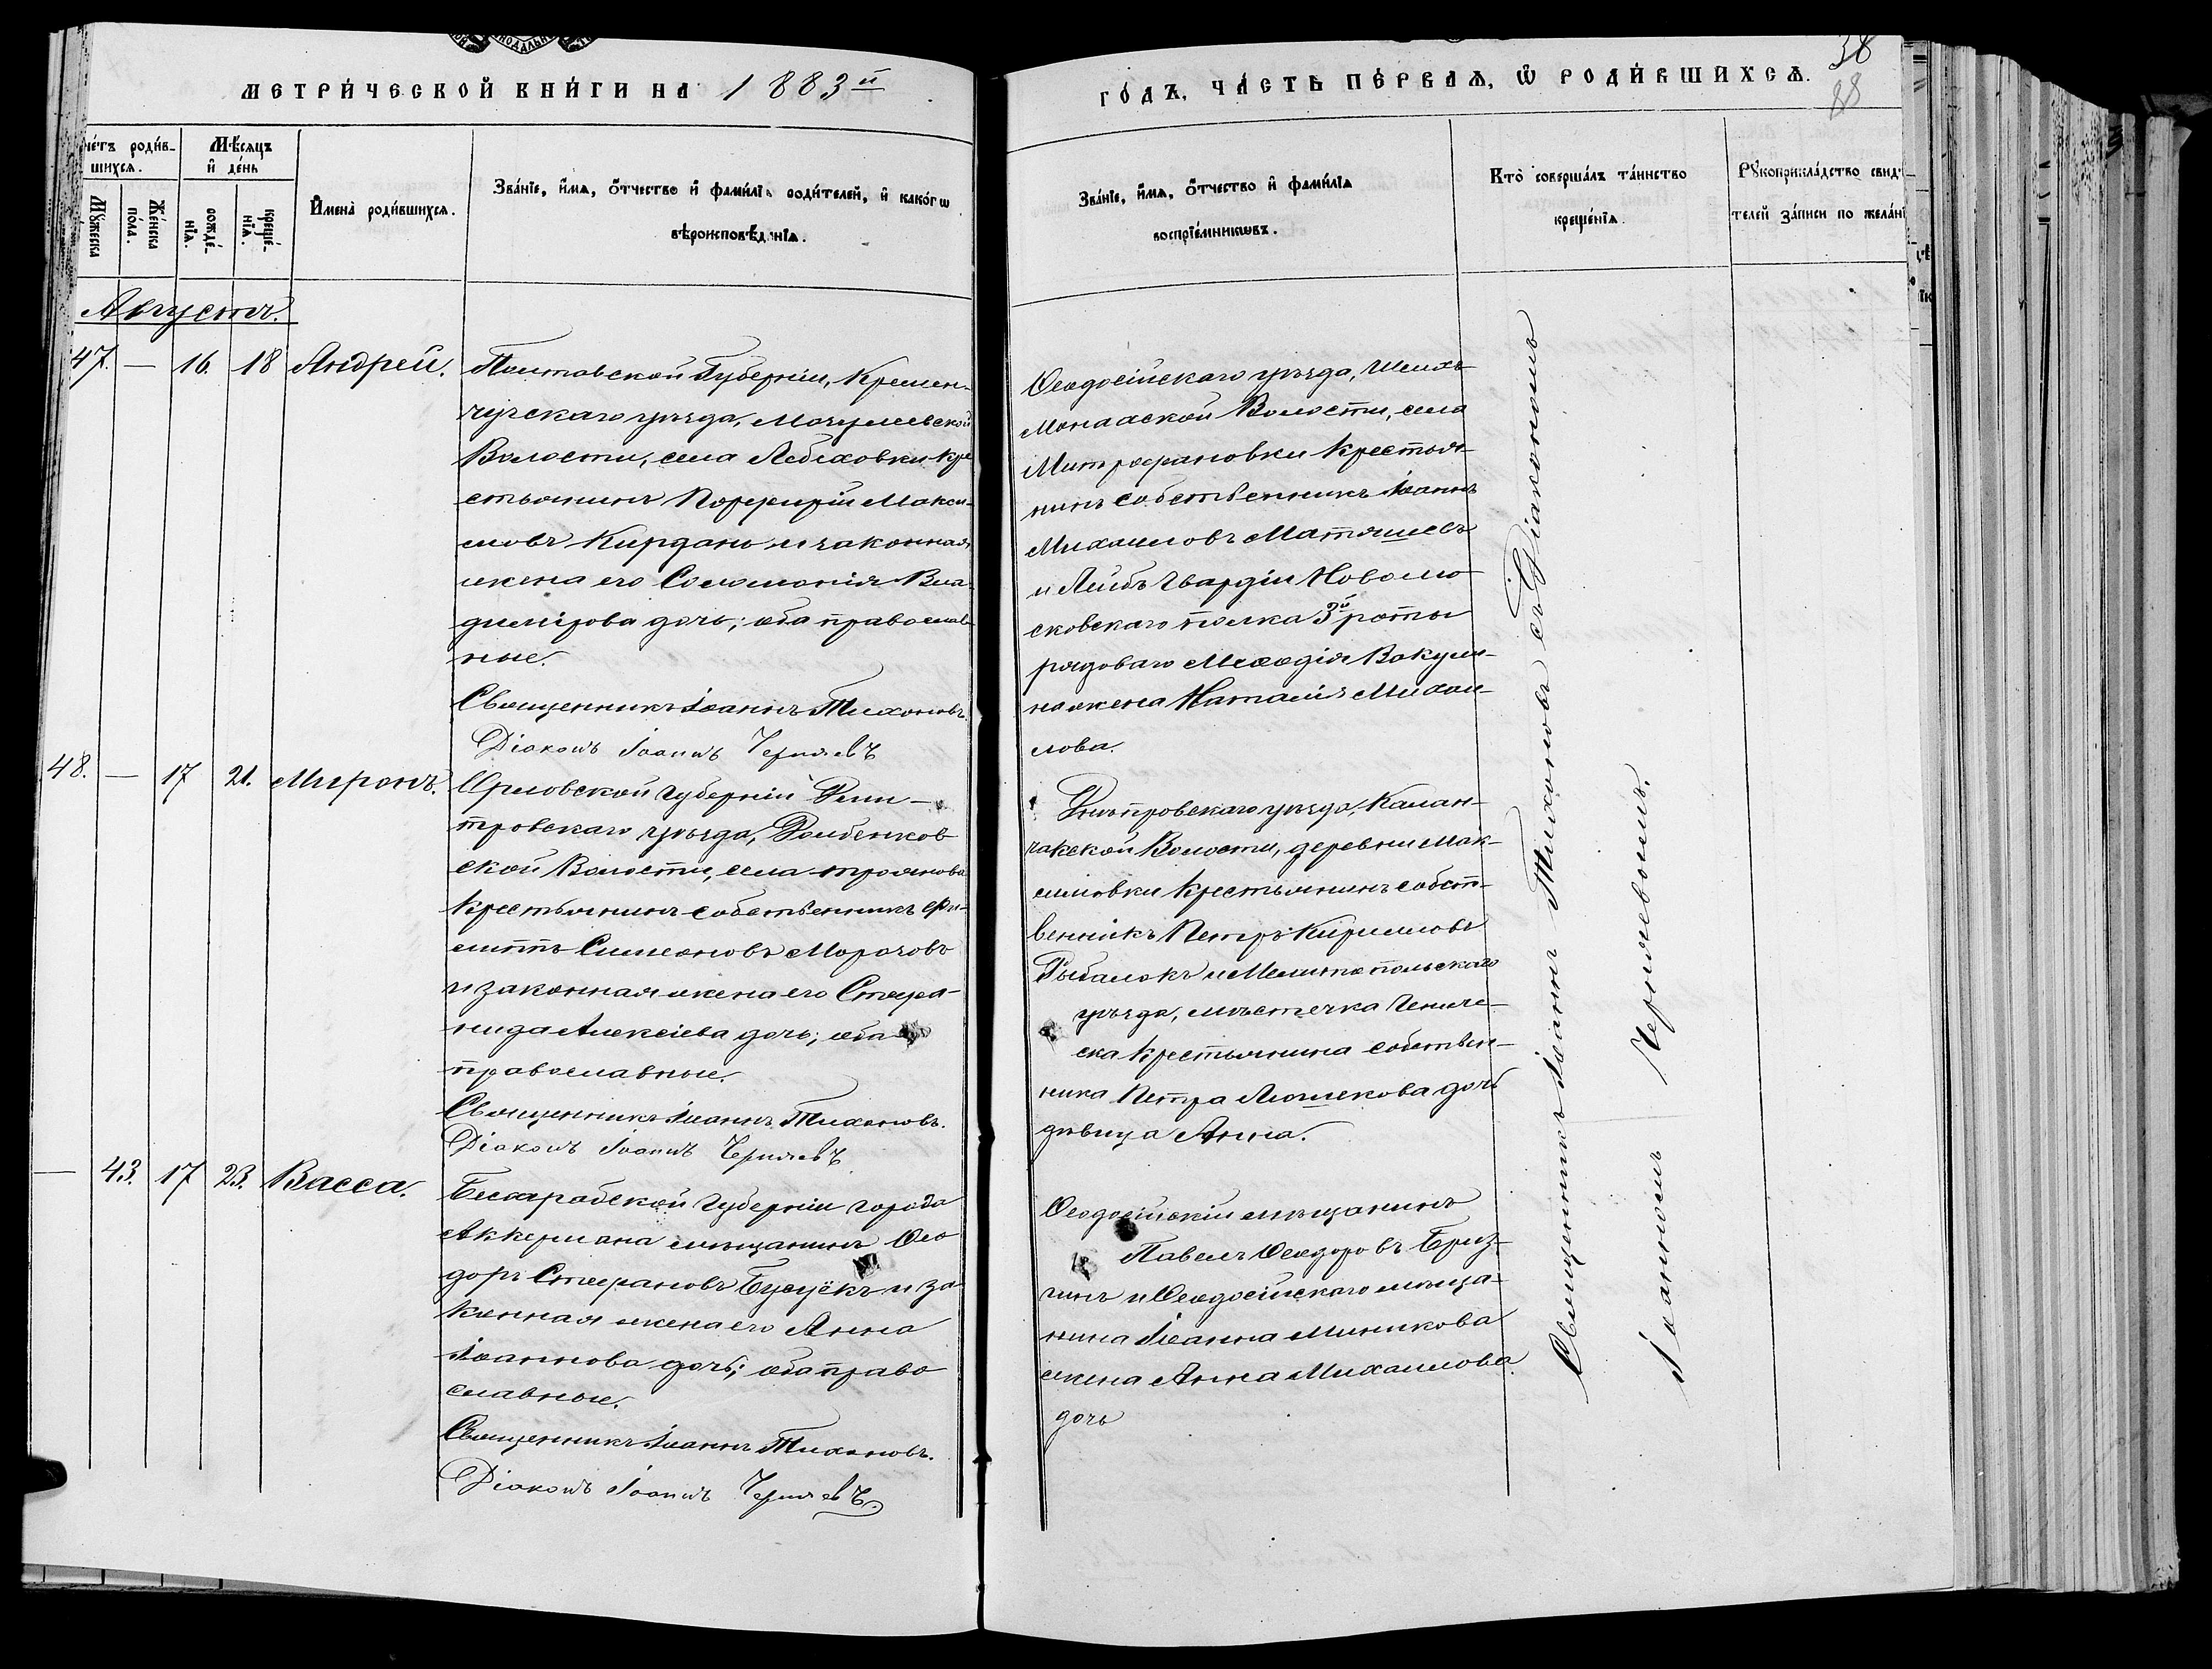 МЕТРИ́ЧЕСКОЙ КНИ́ГИ НА 1883й
ГО́ДЪ, ЧА́СТЬ ПЕ́РВАЯ, Ѽ РОДИ́ВШИХСЯ.
38
88
че́тъ роди́в-
шихся.
Мѣ́сяцъ
и҆ де́нь
Мꙋ́жеска
Же́нска
по́ла.
рожде́-
нїя.
креще́-
нїя.
И҆мена̀ роди́вшихся.
Зва́нїе, и҆́мя, ѻ҆́тчество и҆ фами́лїя родителей, и҆ како́гѡ
вѣроисповѣданїя.
Зва́нїе, и҆́мя, ѻ҆́тчество и҆ фами́лїя
воспрїе́мникѡвъ.
Кто̀ соверша́лъ та́инство
креще́нїя.
Рꙋкоприкла́дство свид
телей за́писи по жела́нї
Августъ.
47. — 16. 18 Андрей.
Полтавской Губерніи, Кремен-
чугскаго уѣзда,
Волости, села Лебеховки кре
стьянинъ Порфирій Макси-
мовъ Кирдань и законная
жена его Соломонія Вла-
димірова дочь; оба православ
ные.
Священникъ Іоаннъ Тихоновъ.
Діаконъ Іоаннъ Чернявъ
Ѳеодосійскаго уѣзда, Шейхъ
Монахской Волости, села
Митрофановки Крестья-
нинъ собственникъ Іоаннъ
Михаиловъ Матяшевъ
и Лейбъ Гвардіи Новомо-
сковскаго полка 3й роты
рядоваго Меѳодія Вакули-
на жена Наталія Михаи-
лова.
48. — 17 21. Миронъ.
Орловской губерніи Дми-
тровскаго уѣзда, Долбенков
ской Волости, села Троянова
крестьянинъ собственникъ Фи-
липпъ Симеоновъ Морозовъ
и законная жена его Стефа-
нида Алексіева дочь; оба
православные.
Священникъ Іоаннъ Тихоновъ.
Діаконъ Іоаннъ Чернявъ
Днѣпровскаго уѣзда, Калан-
чакской Волости, деревни Мак-
симовки крестьянинъ собст-
венникъ Петръ Кирилловъ
Рыбалокъ и Мелитопольскаго
уѣзда, мѣстечка Гениче-
ска крестьянина собствен-
ника Петра Люшекова дочь
дѣвица Анна.
— 43. 17 23. Васса.
Бессарабской губерніи города
Аккермана мѣщанинъ Ѳео
доръ Стефановъ Бусуёкъ и за-
конная жена его Анна
Іоаннова дочь; оба право
славные.
Священникъ Іоаннъ Тихоновъ.
Діаконъ Іоаннъ Чернявъ
Ѳеодосійскій мѣщанинъ
Павелъ Ѳеодоровъ Бриз-
гинъ и Ѳеодосійскаго мѣща-
нина Іоанна Миникова
жена Анна Михаилова
дочь
Священникъ Іоаннъ Тихоновъ съ Діакономъ
Іоанномъ Чернявовымъ.